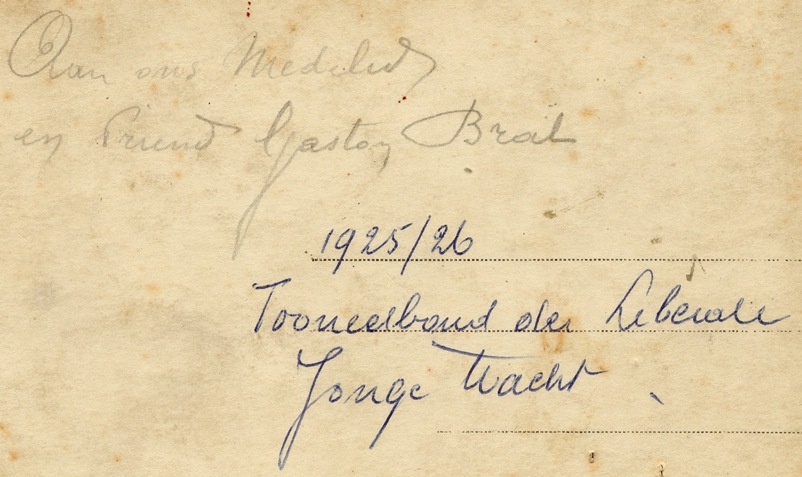 Aan ons Medelid
en Vriend Gaston Bral
1925/26
Tooneelbond der Liberale
Jonge Wacht